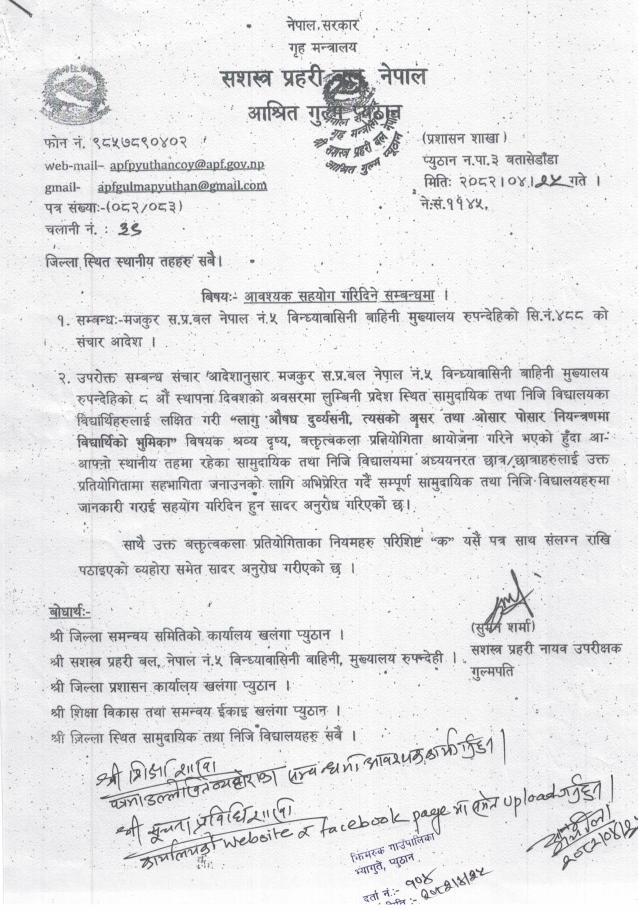 नेपाल सरकार
गृह मन्त्रालय
सशस्त्र प्रहरी बल, नेपाल
आश्रित गुल्म प्यूठान
फोन नं. ९८५७८९०४०२
web-mail– apfpyuthancoy@apf.gov.np
gmail- apfgulmapyuthan@gmail.com
पत्र संख्याः-(०८२/०८३)
चलानी नं. : ३६
(प्रशासन शाखा)
प्यूठान न.पा.३ बतासेडाँडा
मितिः २०८२।०४।२५ गते ।
ने.सं.११४५,
जिल्ला स्थित स्थानीय तहहरु सबै।
बिषयः- आवश्यक सहयोग गरिदिने सम्बन्धमा ।
१. सम्बन्धः-मजकुर स.प्र.बल नेपाल नं.५ बिन्ध्यावासिनी बाहिनी मुख्यालय रुपन्देहिको सि.नं.४८८ को
संचार आदेश ।
२. उपरोक्त सम्बन्ध संचार आदेशानुसार मजकुर स.प्र.बल नेपाल नं.५ बिन्ध्यावासिनी बाहिनी मुख्यालय
रुपन्देहिको ८ औं स्थापना दिवशको अवसरमा लुम्बिनी प्रदेश स्थित सामुदायिक तथा निजि विद्यालयका
विद्यार्थिहरुलाई लक्षित गरी "लागु औषध दुर्व्यसनी, त्यसको असर तथा ओसार पोसार नियन्त्रणमा
विद्यार्थिको भुमिका" विषयक श्रव्य दृष्य, बक्तृत्वकला प्रतियोगिता आयोजना गरिने भएको हुँदा आ-
आफ्नो स्थानीय तहमा रहेका सामुदायिक तथा निजि विद्यालयमा अध्ययनरत छात्र/छात्राहरुलाई उक्त
प्रतियोगितामा सहभागिता जनाउनको लागि अभिप्रेरित गर्दै सम्पूर्ण सामुदायिक तथा निजि विद्यालयहरुमा
जानकारी गराई सहयोग गरिदिन हुन सादर अनुरोध गरिएको छ।
साथै उक्त बक्तृत्वकला प्रतियोगिताका नियमहरु परिशिष्ट "क" यसै पत्र साथ संलग्न राखि
पठाइएको व्यहोरा समेत सादर अनुरोध गरीएको छ ।
(सुमन शर्मा)
सशस्त्र प्रहरी नायव उपरीक्षक
गुल्मपति
बोधार्थः-
श्री जिल्ला समन्वय समितिको कार्यालय खलंगा प्यूठान ।
श्री सशस्त्र प्रहरी बल, नेपाल नं.५ बिन्ध्यावासिनी बाहिनी, मुख्यालय रुपन्देही ।
श्री जिल्ला प्रशासन कार्यालय खलंगा प्यूठान ।
श्री शिक्षा विकास तथा समन्वय ईकाइ खलंगा प्यूठान ।
श्री जिल्ला स्थित सामुदायिक तथा निजि विद्यालयहरु सबै ।
श्री शिक्षा शाखा
पत्रमा उल्लेखित व्यहोराका सम्बन्धमा आवश्यक कार्य गर्नुहुन ।
श्री सूचना प्रविधि शाखा
कार्यालयको website र facebook page मा समेत upload गर्नुहुन ।
२०८२/०४/२५
झिमरुक गाउँपालिका
भ्यागुते, प्यूठान
दर्ता नं.:- १०४
२०८२/४/२५